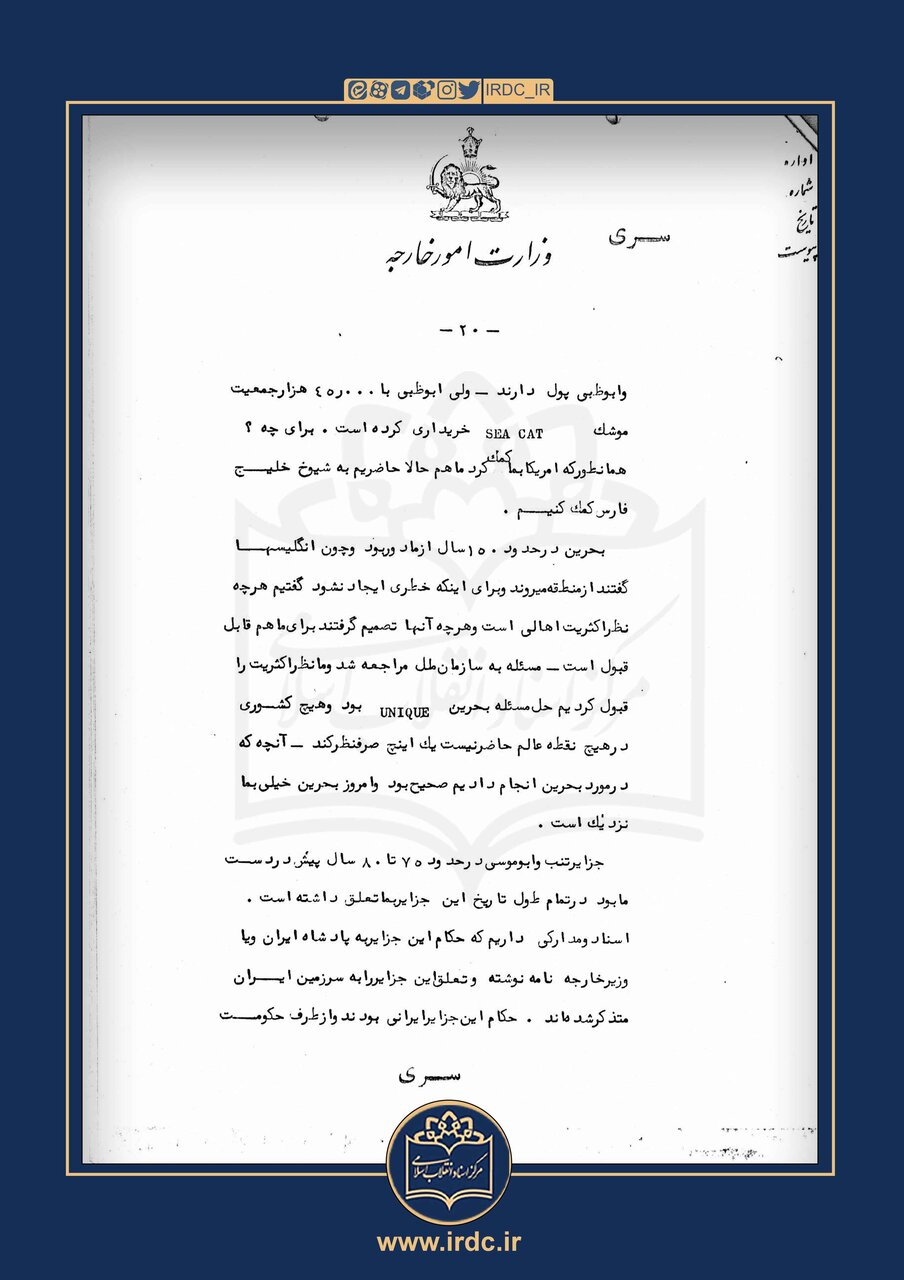 IRDC_IR
اداره
شماره
تاریخ
پیوست
سـری
وزارت امور خارجه
— ۲۰ —
وابوظبی پول دارند — ولی ابوظبی با ۴۵٫۰۰۰ هزارجمعیت
موشك SEA CAT خریداری کرده است . برای چه ؟
همانطورکه امریکا بما کمك کرد ماهم حالا حاضریم به شیوخ خلیــج
فارس کمك کنیــم .
بحرین درحدود ۱۵۰ سال ازما دوربود وچون انگلیسهــا
گفتند ازمنطقه میروند وبرای اینکه خطری ایجاد نشود گفتیم هرچه
نظراکثریت اهالی است وهرچه آنها تصمیم گرفتند برای ما هم قابل
قبول است — مسئله به سازمان ملل مراجعه شد ومانظراکثریت را
قبول کردیم حل مسئله بحرین UNIQUE بود وهیچ کشوری
درهیچ نقطه عالم حاضرنیست یك اینچ صرفنظرکند — آنچه که
درمورد بحرین انجام دادیم صحیح بود وامروز بحرین خیلی بما
نزدیك است .
جزایرتنب وابوموسی درحدود ۷۵ تا ۸۰ سال پیش دردســت
مابود درتمام طول تاریخ این جزایربماتعلق داشته است .
اسناد ومدارکی داریم که حکام این جزایربه پادشاه ایران ویا
وزیرخارجه نامه نوشته وتعلق این جزایررابه سرزمین ایــران
متذکرشده اند . حکام این جزایرایرانی بودند وازطرف حکومــت
سـری
مرکز اسناد انقلاب اسلامی
www.irdc.ir